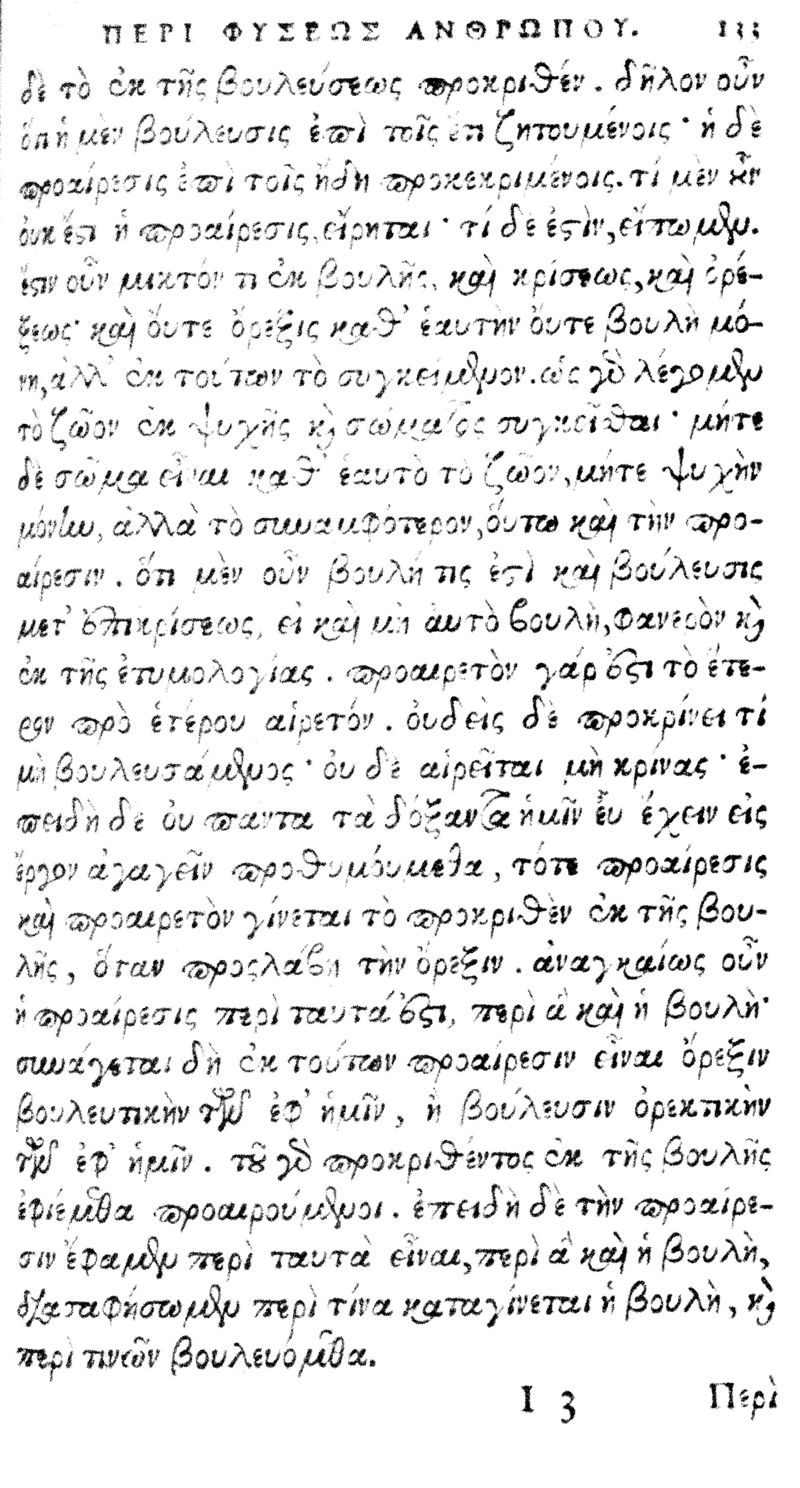 ΠΕΡΙ ΦΥΣΕΩΣ ΑΝΘΡΩΠΟΥ. 133
δὲ τὸ ἐκ τῆς βουλεύσεως προκριθέν. δῆλον οὖν
ὅτι ἡ μὲν βούλευσις ἐπὶ τοῖς ἔτι ζητουμένοις· ἡ δὲ
προαίρεσις ἐπὶ τοῖς ἤδη προκεκριμένοις. τί μὲν οὖν
οὐκ ἔστι ἡ προαίρεσις, εἴρηται· τί δὲ ἐστὶν, εἴπωμεν.
ἔστιν οὖν μικτόν τι ἐκ βουλῆς, καὶ κρίσεως, καὶ ὀρέ-
ξεως· καὶ οὔτε ὄρεξις καθ' ἑαυτὴν οὔτε βουλὴ μό-
νη, ἀλλ' ἐκ τούτων τὸ συγκείμενον. ὡς γὰρ λέγομεν
τὸ ζῶον ἐκ ψυχῆς καὶ σώματος συγκεῖσθαι· μήτε
δὲ σῶμα εἶναι καθ' ἑαυτὸ τὸ ζῶον, μήτε ψυχὴν
μόνην, ἀλλὰ τὸ συναμφότερον, οὕτω καὶ τὴν προ-
αίρεσιν. ὅτι μὲν οὖν βουλή τις ἐστὶ καὶ βούλευσις
μετ' ἐπικρίσεως, εἰ καὶ μὴ αὐτὸ βουλὴ, φανερὸν καὶ
ἐκ τῆς ἐτυμολογίας. προαιρετὸν γάρ ἐστι τὸ ἕτε-
ρον πρὸ ἑτέρου αἱρετόν. οὐδεὶς δὲ προκρίνει τί
μὴ βουλευσάμενος· οὐ δὲ αἱρεῖται μὴ κρίνας· ἐ-
πειδὴ δὲ οὐ πάντα τὰ δόξαντα ἡμῖν εὖ ἔχειν εἰς
ἔργον ἀγαγεῖν προθυμούμεθα, τότε προαίρεσις
καὶ προαιρετὸν γίνεται τὸ προκριθὲν ἐκ τῆς βου-
λῆς, ὅταν προσλάβῃ τὴν ὄρεξιν. ἀναγκαίως οὖν
ἡ προαίρεσις περὶ ταυτά ἐστι, περὶ ἃ καὶ ἡ βουλὴ·
συνάγεται δὴ ἐκ τούτων προαίρεσιν εἶναι ὄρεξιν
βουλευτικὴν τῶν ἐφ' ἡμῖν, ἢ βούλευσιν ὀρεκτικὴν
τῶν ἐφ' ἡμῖν. τοῦ γὰρ προκριθέντος ἐκ τῆς βουλῆς
ἐφιέμεθα προαιρούμενοι. ἐπειδὴ δὲ τὴν προαίρε-
σιν ἔφαμεν περὶ ταυτὰ εἶναι, περὶ ἃ καὶ ἡ βουλὴ,
διασαφήσωμεν περὶ τίνα καταγίνεται ἡ βουλὴ, καὶ
περὶ τινῶν βουλευόμεθα.
I 3 Περὶ